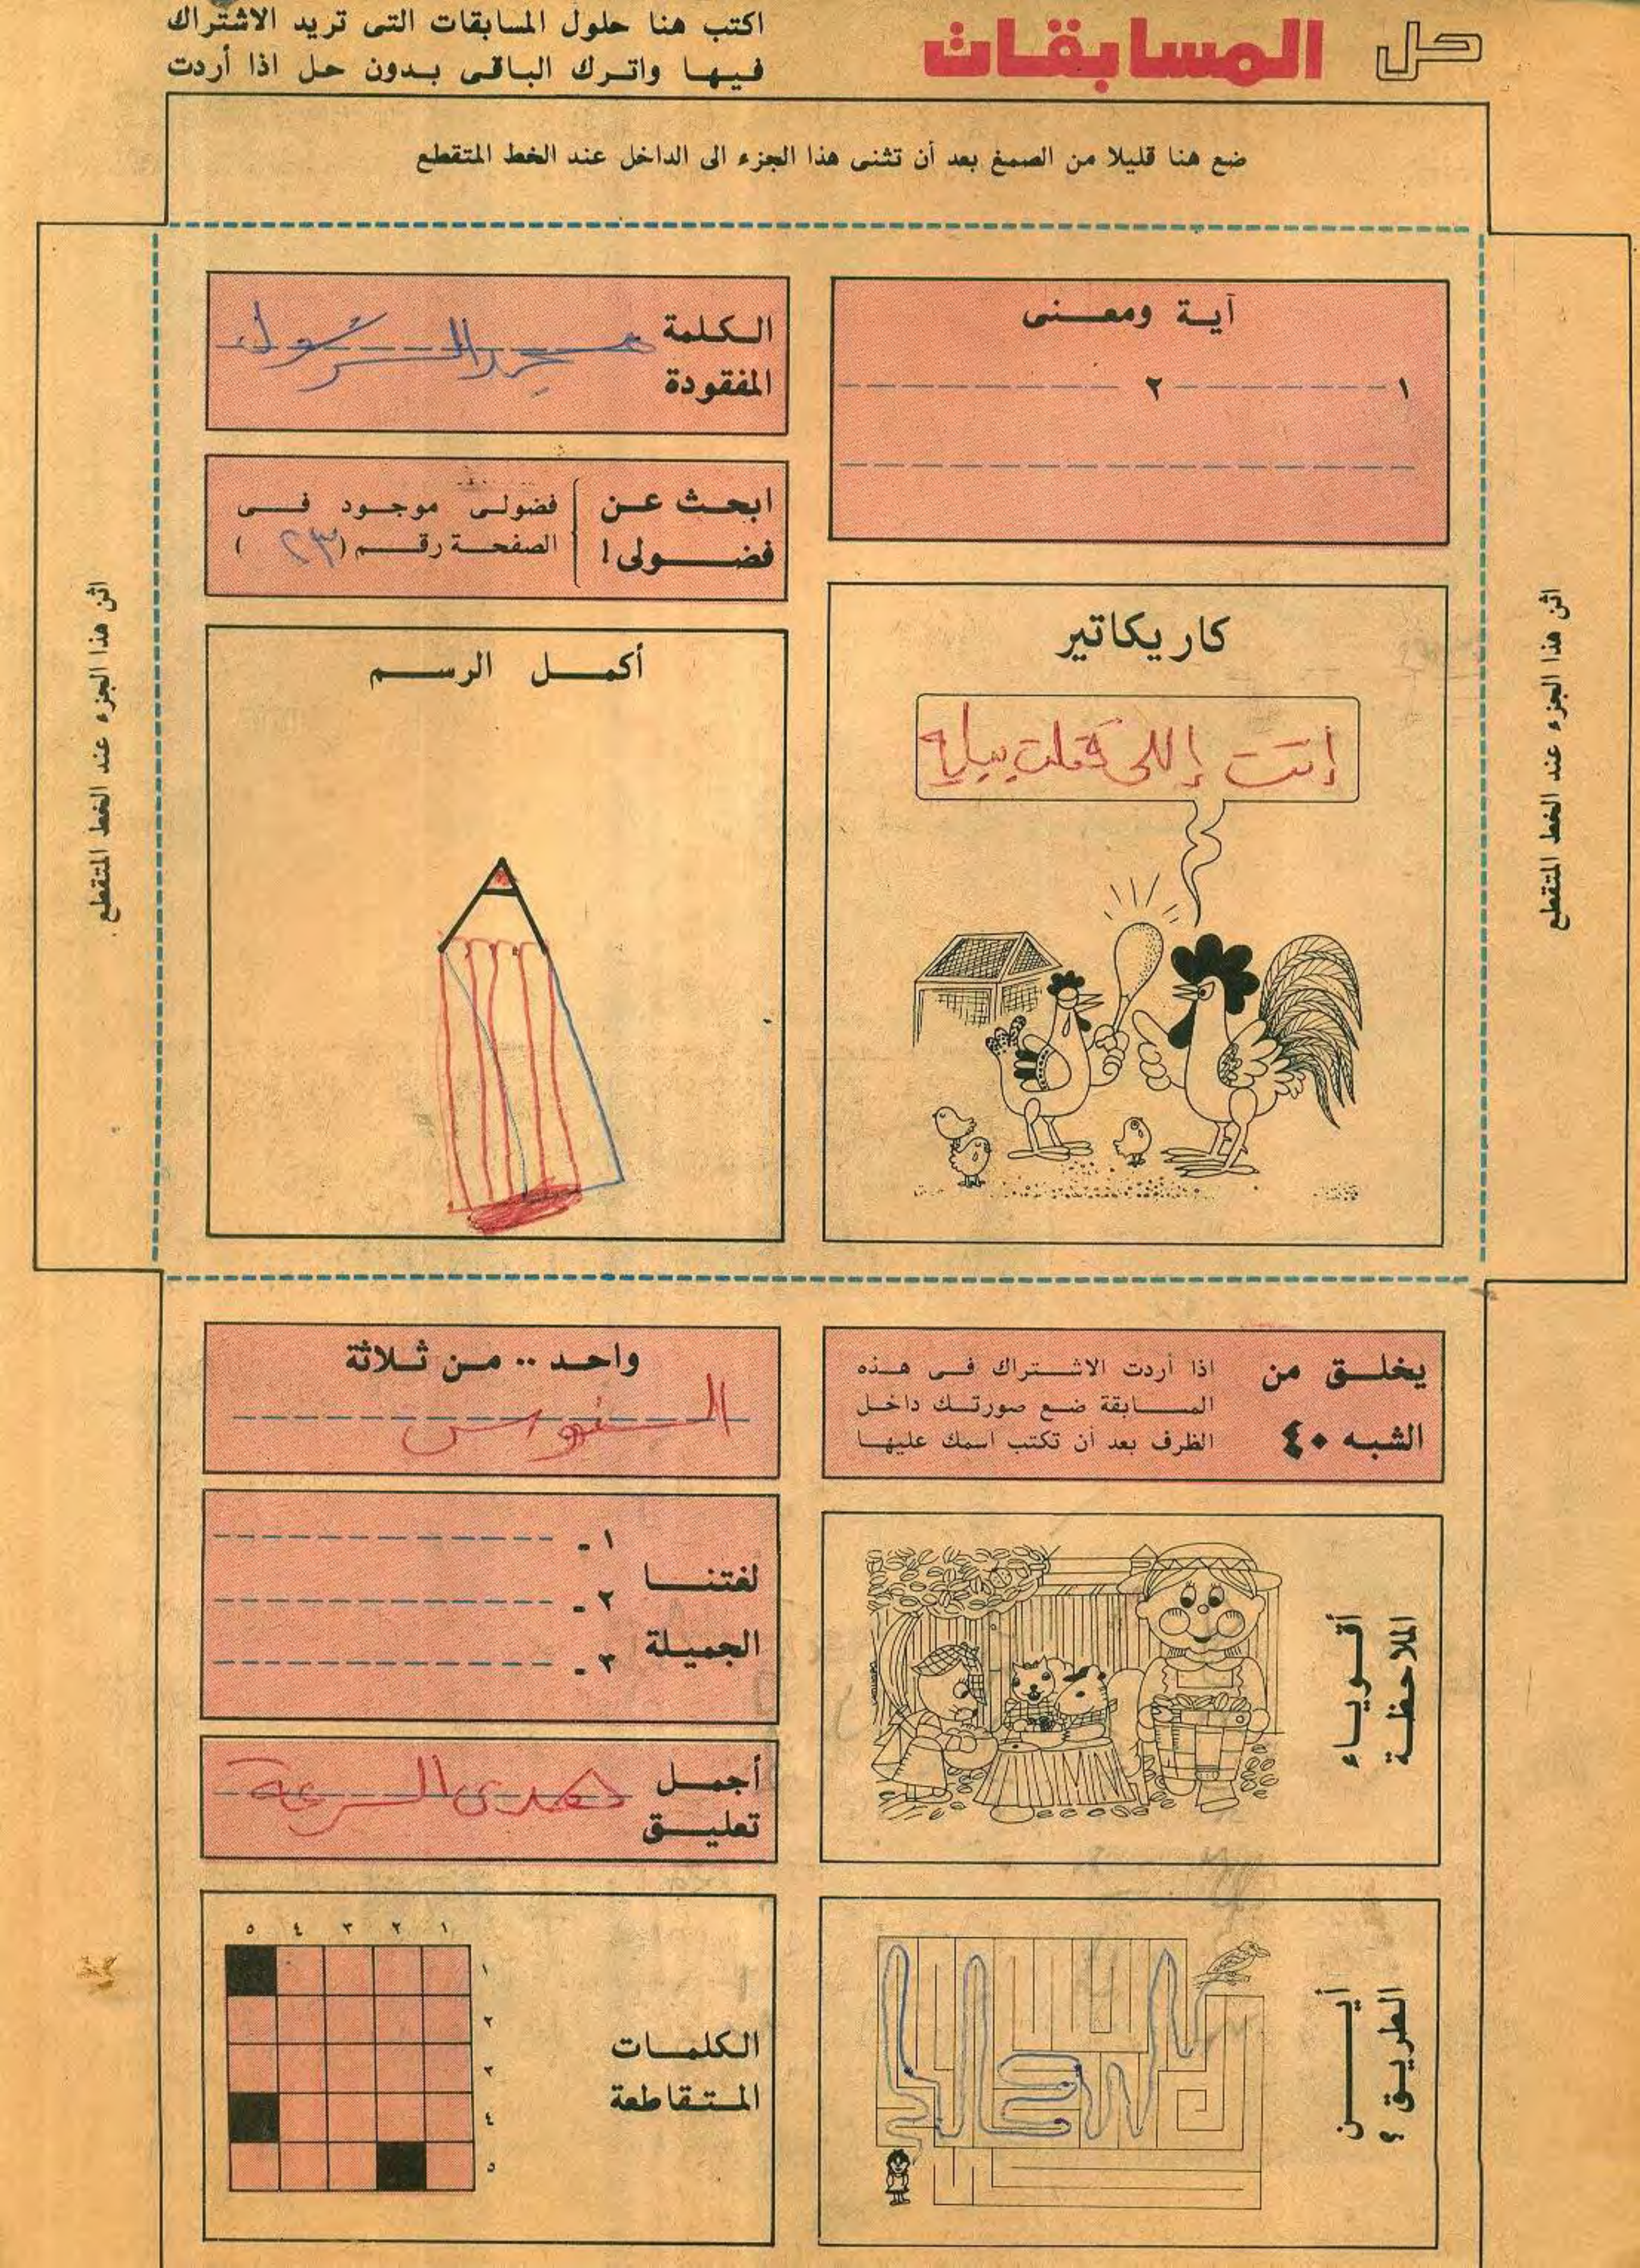 حل المسابقات
اكتب هنا حلول المسابقات التى تريد الاشتراك
فيها واترك الباقى بدون حل اذا أردت
ضع هنا قليلا من الصمغ بعد أن تثنى هذا الجزء الى الداخل عند الخط المتقطع
اثن هذا الجزء عند الخط المتقطع
آية ومعنى
١ ٢
الكلمة
المفقودة
محمد الرسول
ابحث عن
فضولى !
فضولى موجود فى
الصفحة رقم (٢٣)
كاريكاتير
إنت إللى
أكمل الرسم
اثن هذا الجزء عند الخط المتقطع
يخلق من
الشبه ٤٠
اذا أردت الاشتراك فى هذه
المسابقة ضع صورتك داخل
الظرف بعد أن تكتب اسمك عليها
واحد .. من ثلاثة
أقوياء
الملاحظة
لغتنا
الجميلة
١ -
٢ -
٣ -
أجمل
تعليق
السرعة
أين
الطريق ؟
الكلمات
المتقاطعة
١ ٢ ٣ ٤ ٥
١
٢
٣
٤
٥